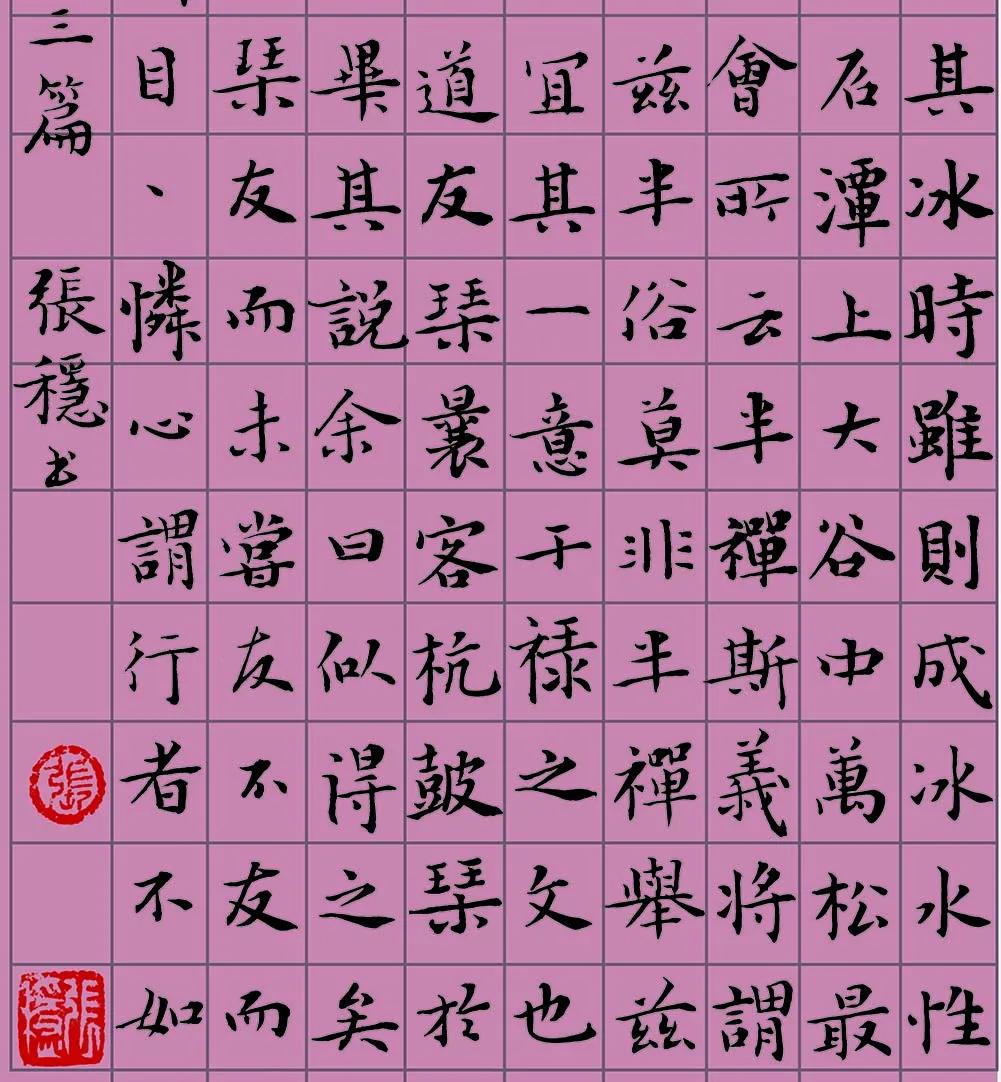 其冰時雖則成冰水性
后潭上大谷中萬松最
會所云半禪斯義將謂
茲半俗莫非半禪舉茲
宜其一意于祿之文也
道友琹曩客杭鼓琹於
畢其說余曰似得之矣
琹友而未嘗友不友而
目、憐心謂行者不如
三篇 張穩書
張